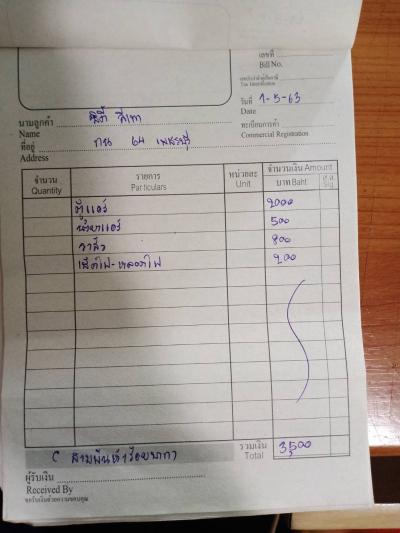 เลขที่
Bill No.
เลขประจำตัวผู้เสียภาษี
Tax Identification
วันที่ 1-5-63
Date
นามลูกค้า
Name
ทะเบียนการค้า
Commercial Registration
ที่อยู่ 64 เพชรบุรี
Address
จำนวน รายการ หน่วยละ จำนวนเงิน Amount
Quantity Particulars Unit บาท Baht ส.ต. Stg.
ตู้แอร์ 2000
น้ำยาแอร์ 500
วาล์ว 800
200
สามพันห้าร้อยบาท
รวมเงิน 3,500
Total
ผู้รับเงิน
Received By
ขอรับเงินด้วยความขอบคุณ